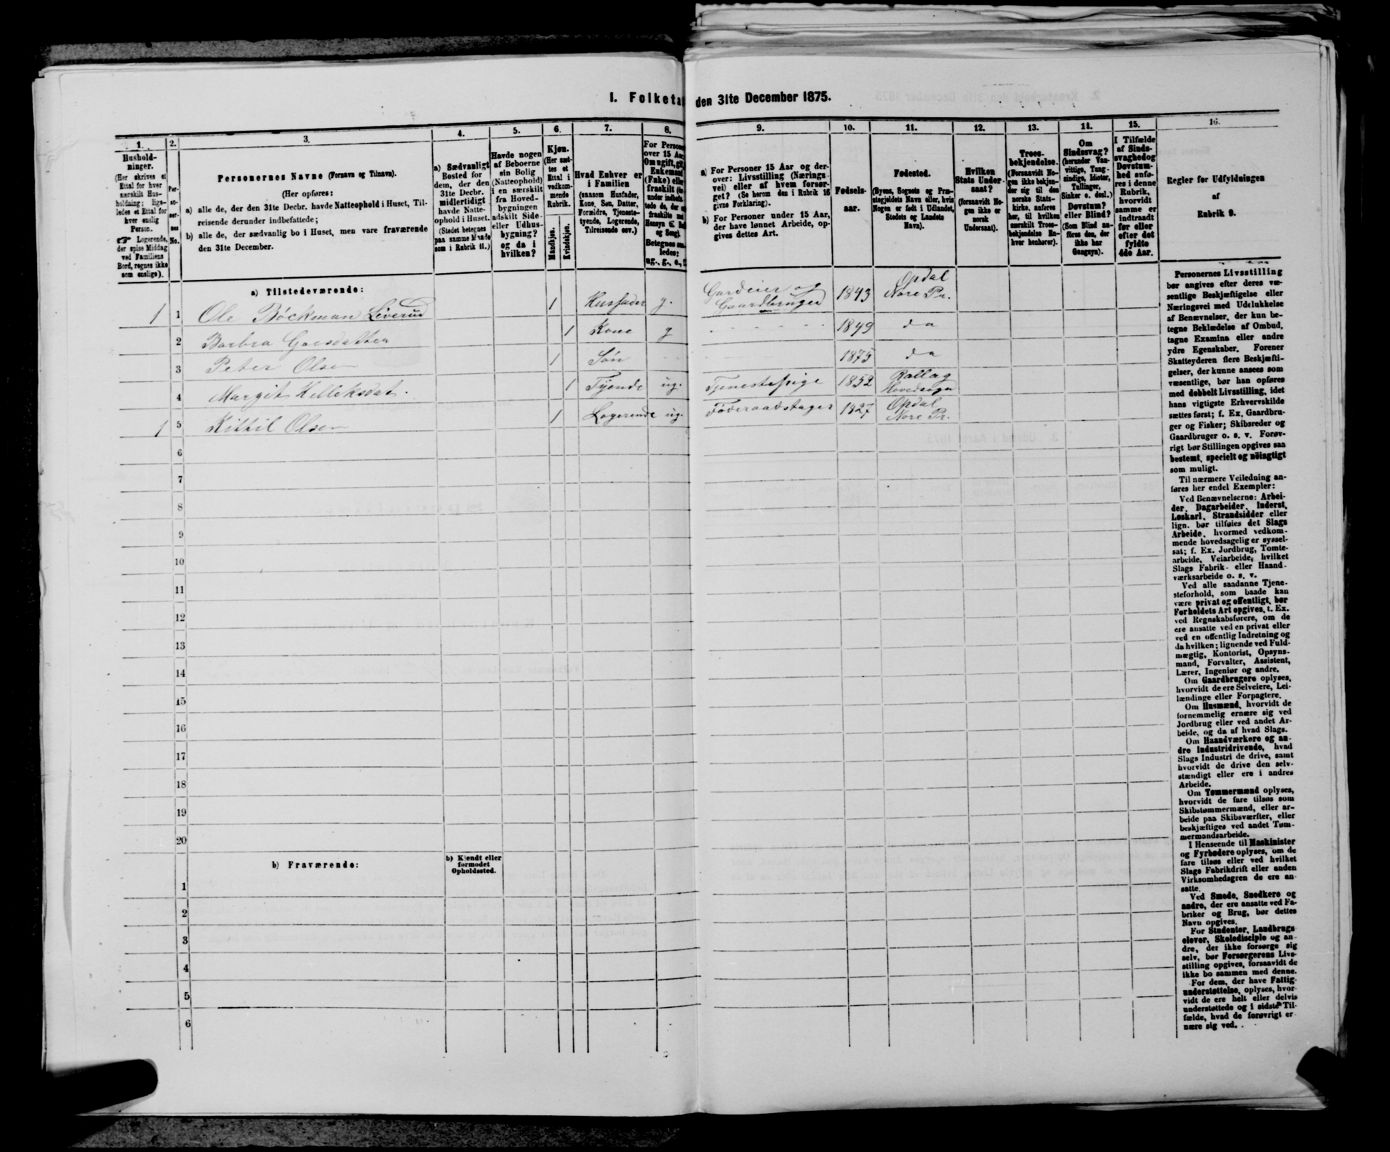 I. Folketæ den 31te December 1875.
1. 2. 3. 4. 5. 6. 7. 8. 9. 10. 11. 12. 13. 14. 15. 16.
Hushold-
ninger.
(Her skrives et
Ettal for hver
særskilt Hus-
holdning; lige-
ledes et Ettal for
hver enslig
Person.
Logerende,
der spise Middag
ved Familiens
Bord, regnes ikke
som enslige).
Per-
so-
ner-
nes
No.
Personernes Navne (Fornavn og Tilnavn).
(Her opføres:
a) alle de, der den 31te Decbr. havde Natteophold i Huset, Til-
reisende derunder indbefattede;
b) alle de, der sædvanlig bo i Huset, men vare fraværende
den 31te December.
a) Sædvanligt
Bosted for
dem, der den
31te Decbr.
midlertidigt
havde Natte-
ophold i Huset.
(Stedet betegnes
paa samme Maade
som i Rubrik 11.)
Havde nogen
af Beboerne
sin Bolig
(Natteophold)
i en særskilt
fra Hoved-
bygningen
adskilt Side-
eller Udhus-
bygning?
og da i
hvilken?
Kjøn.
(Her sæt-
tes et
Ettal i
vedkom-
mende
Rubrik.
Mandkjøn.
Kvindekjøn.
Hvad Enhver er
i Familien
(saasom Husfader,
Kone, Søn, Datter,
Forældre, Tjeneste-
tyende, Logerende,
Tilreisende osv.)
For Personer
over 15 Aar:
Om ugift, gift,
Enkemand
(Enke) eller
fraskilt
a) For Personer 15 Aar og der-
over: Livsstilling (Nærings-
vei) eller af hvem forsør-
get? (Se herom den i Rubrik 16
givne Forklaring).
b) For Personer under 15 Aar,
der have lønnet Arbeide, op-
gives dettes Art.
Fødsels-
aar.
Fødested.
(Byens, Sognets og Præ-
stegjeldets Navn eller, hvis
Nogen er født i Udlandet,
Stedets og Landets
Navn).
Hvilken
Stats Under-
saat?
(forsaavidt No-
gen ikke er
norsk
Undersaat).
Troes-
bekjendelse.
(Forsaavidt No-
gen ikke bekjen-
der sig til den
norske Stats-
kirke, anføres
her, til hvilken
særskilt Troes-
bekjendelse En-
hver henhører).
Om
Sindssvag?
(herunder Van-
vittige, Tung-
sindige, Idioter,
Tullinger,
Sinker o. desl.)
Døvstum?
eller Blind?
(Som Blind an-
føres den, der
ikke har
Gangsyn).
I Tilfælde
af Sinds-
svaghed og
Døvstum-
hed anfø-
res i denne
Rubrik,
hvorvidt
samme er
indtraadt
før eller
efter det
fyldte
4de Aar.
Regler for Udfyldningen
af
Rubrik 9.
a) Tilstedeværende:
1 1 Ole Bøckman Liverud 1 Husfader g. Gardeier og Gaardbruger 1843 Opdal Nore Pr.
2 Barbra 1 Kone g 1849 da
3 Peter Olsen 1 Søn 1875 da
4 Margit Kelleksdat. 1 Tyende ug. Tjenestepige 1852 Rollag
1 5 Kittil Olsen 1 Logerende ug. Föderaadstager 1827 Opdal Nore Pr.
6
7
8
9
10
11
12
13
14
15
16
17
18
19
20
b) Fraværende:
b) Kjendt eller
formodet
Opholdssted.
1
2
3
4
5
6
Personernes Livsstilling
bør angives efter deres væ-
sentlige Beskjæftigelse eller
Næringsvei med Udelukkelse
af Benævnelser, der kun be-
tegne Beklædelse af Ombud,
tagne Examina eller andre
ydre Egenskaber. Forener
Skatteyderen flere Beskjæfti-
gelser, der kunne ansees som
væsentlige, bør han opføres
med dobbelt Livsstilling, idet
hans vigtigste Erhvervskilde
sættes først; f. Ex. Gaardbru-
ger og Fisker; Skibsreder og
Gaardbruger o. s. v. Forøv-
rigt bør Stillingen opgives saa
bestemt, specielt og nøiagtigt
som muligt.
Til nærmere Veiledning an-
føres her endel Exempler:
Ved Benævnelserne: Arbei-
der, Dagarbeider, Inderst,
Løskarl, Strandsidder eller
lign. bør tilføies det Slags
Arbeide, hvormed vedkom-
mende hovedsagelig er syssel-
sat; f. Ex. Jordbrug, Tomte-
arbeide, Veiarbeide, hvilket
Slags Fabrik- eller Haand-
værksarbeide o. s. v.
Ved alle saadanne Tjene-
steforhold, som baade kan
være privat og offentligt, bør
Forholdets Art opgives, t. Ex.
ved Regnskabsførere, om de
ere ansatte ved en privat eller
ved en offentlig Indretning og
da hvilken; lignende ved Fuld-
mægtig, Kontorist, Opsyns-
mand, Forvalter, Assistent,
Lærer, Ingeniør og andre.
Om Gaardbrugere oplyses,
hvorvidt de ere Selveiere, Lei-
lændinge eller Forpagtere.
Om Husmænd, hvorvidt de
fornemmelig ernære sig ved
Jordbrug eller ved andet Ar-
beide, og da af hvad Slags.
Om Haandværkere og an-
dre Industridrivende, hvad
Slags Industri de drive, samt
hvorvidt de drive den selv-
stændigt eller ere i andres
Arbeide.
Om Tømmermænd oplyses,
hvorvidt de fare tilsøs som
Skibstømmermænd, eller ar-
beide paa Skibsværfter, eller
beskjæftiges ved andet Tøm-
mermandsarbeide.
I Henseende til Maskinister
og Fyrbødere oplyses, om de
fare tilsøs eller ved hvilket
Slags Fabrikdrift eller anden
Virksomhedsgren de ere an-
satte.
Ved Smede, Snedkere og
andre, der ere ansatte ved Fa-
briker og Brug, bør dettes
Navn opgives.
For Studenter, Landbrugs-
elever, Skoledisciple og an-
dre, der ikke forsørge sig
selv, bør Forsørgerens Livs-
stilling opgives, forsaavidt de
ikke bo sammen med denne.
For dem, der have Fattig-
understøttelse, oplyses, hvor-
vidt de ere helt eller delvis
understøttede og i sidste Til-
fælde, hvad de forøvrigt er-
nære sig ved.